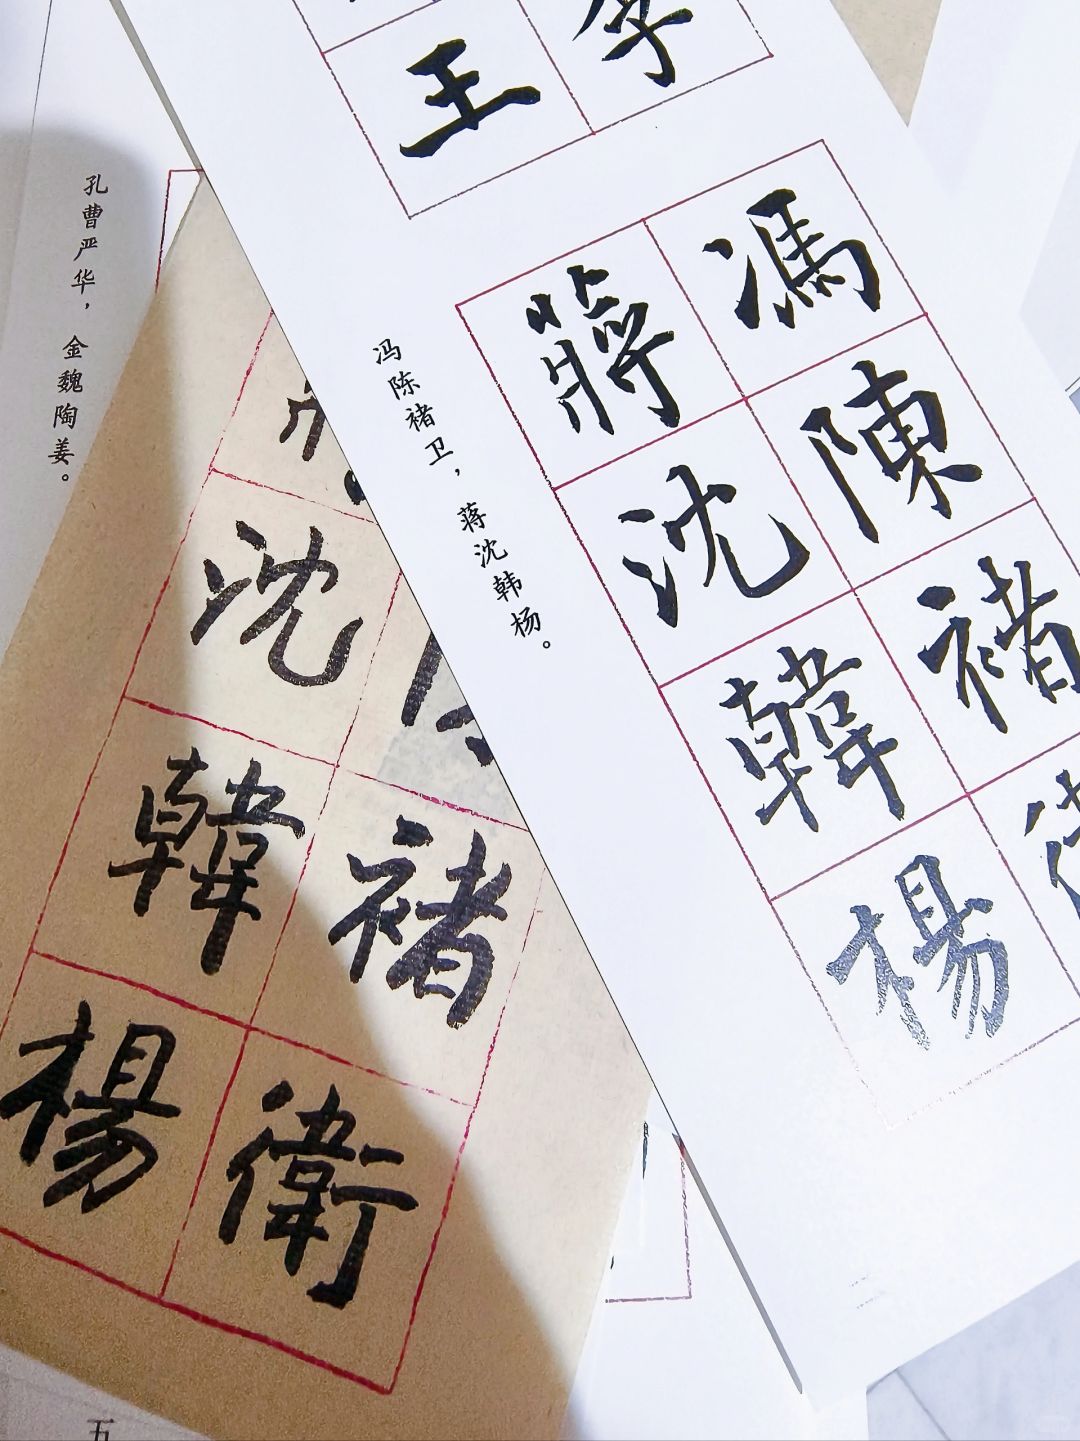 李
王
馮陳褚衛
蔣沈韓楊
冯陈褚卫，蒋沈韩杨。
褚衛
沈韓楊
孔曹严华，金魏陶姜。
五